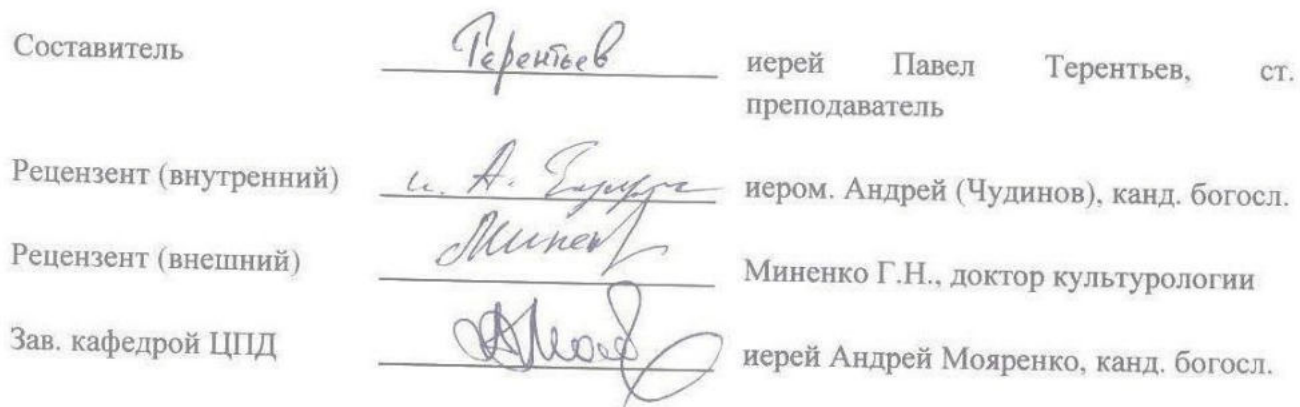 Составитель Терентьев иерей Павел Терентьев, ст.
преподаватель
Рецензент (внутренний) и. А. иером. Андрей (Чудинов), канд. богосл.
Рецензент (внешний) Миненко Г.Н., доктор культурологии
Зав. кафедрой ЦПД иерей Андрей Мояренко, канд. богосл.